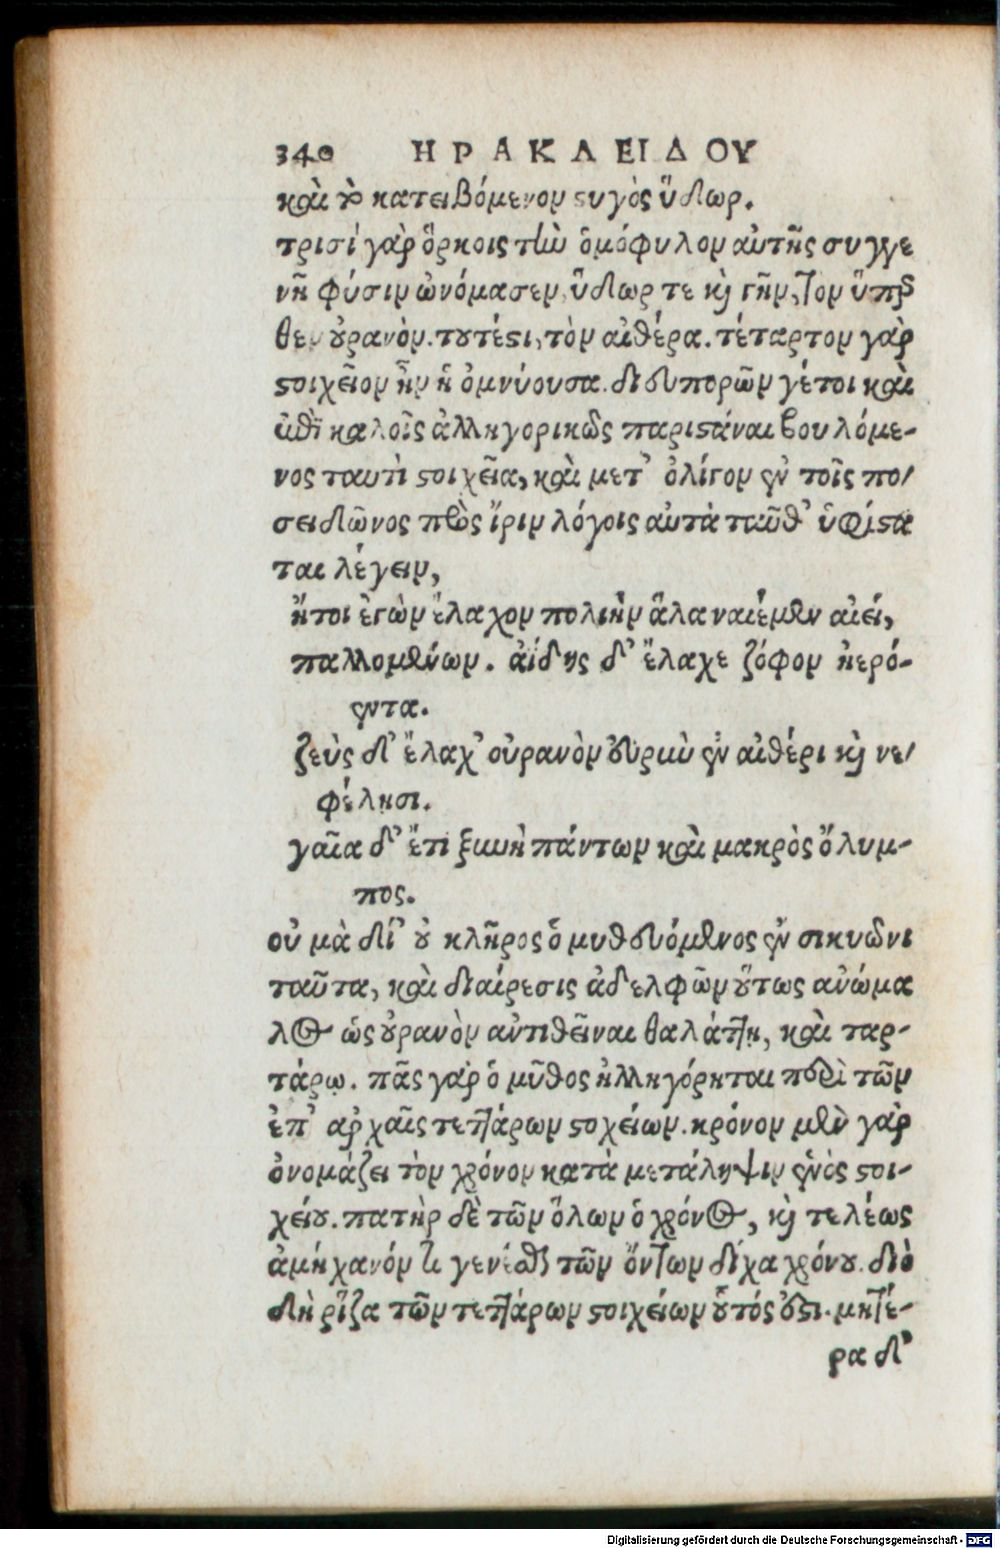 340 ΗΡΑΚΛΕΙΔΟΥ
καὶ τὸ κατειβόμενον στυγὸς ὕδωρ.
τρισὶ γὰρ ὅρκοις τὴν ὁμόφυλον αὐτῆς συγγε
νῆ φύσιν ὠνόμασεν, ὕδωρ τε καὶ γῆν, τὸν ὕπερ
θεν οὐρανὸν. τουτέστι, τὸν αἰθέρα. τέταρτον γὰρ
στοιχεῖον ἦν ἡ ὀμνύουσα. διευπορῶν γέ τοι καὶ
ἐπὶ καλοῖς ἀλληγορικῶς παριστάναι βουλόμε-
νος ταυτὶ στοιχεῖα, καὶ μετ' ὀλίγον ἐν τοῖς πο-
σειδῶνος πρὸς ἴριν λόγοις αὐτὰ ταῦθ' ὑφίστα
ται λέγειν,
ἤτοι ἐγὼν ἔλαχον πολιὴν ἅλα ναιέμεν αἰεί,
παλλομένων. ἀίδης δ' ἔλαχε ζόφον ἠερό-
εντα.
ζεὺς δ' ἔλαχ' οὐρανὸν εὐρὺν ἐν αἰθέρι καὶ νε-
φέλησι.
γαῖα δ' ἔτι ξυνὴ πάντων καὶ μακρὸς ὄλυμ-
πος.
οὐ μὰ δί' οὐ κλῆρος ὁ μυθευόμενος ἐν σικυῶνι
ταῦτα, καὶ διαίρεσις ἀδελφῶν οὕτως ἀνώμα
λος ὡς οὐρανὸν ἀντιθεῖναι θαλάττῃ, καὶ ταρ-
τάρῳ. πᾶς γὰρ ὁ μῦθος ἠλληγόρηται περὶ τῶν
ἐπ' ἀρχαῖς τεττάρων στοχείων. κρόνον μὲν γὰρ
ὀνομάζει τὸν χρόνον κατὰ μετάληψιν ἑνὸς στοι-
χείου. πατὴρ δὲ τῶν ὅλων ὁ χρόνος, καὶ τελέως
ἀμήχανόν τι γενέσθαι τῶν ὄντων δίχα χρόνου. διὸ
δὴ ῥίζα τῶν τεττάρων στοιχείων οὗτός ἐστι. μητέ-
ρα δ'
Digitalisierung gefördert durch die Deutsche Forschungsgemeinschaft - DFG